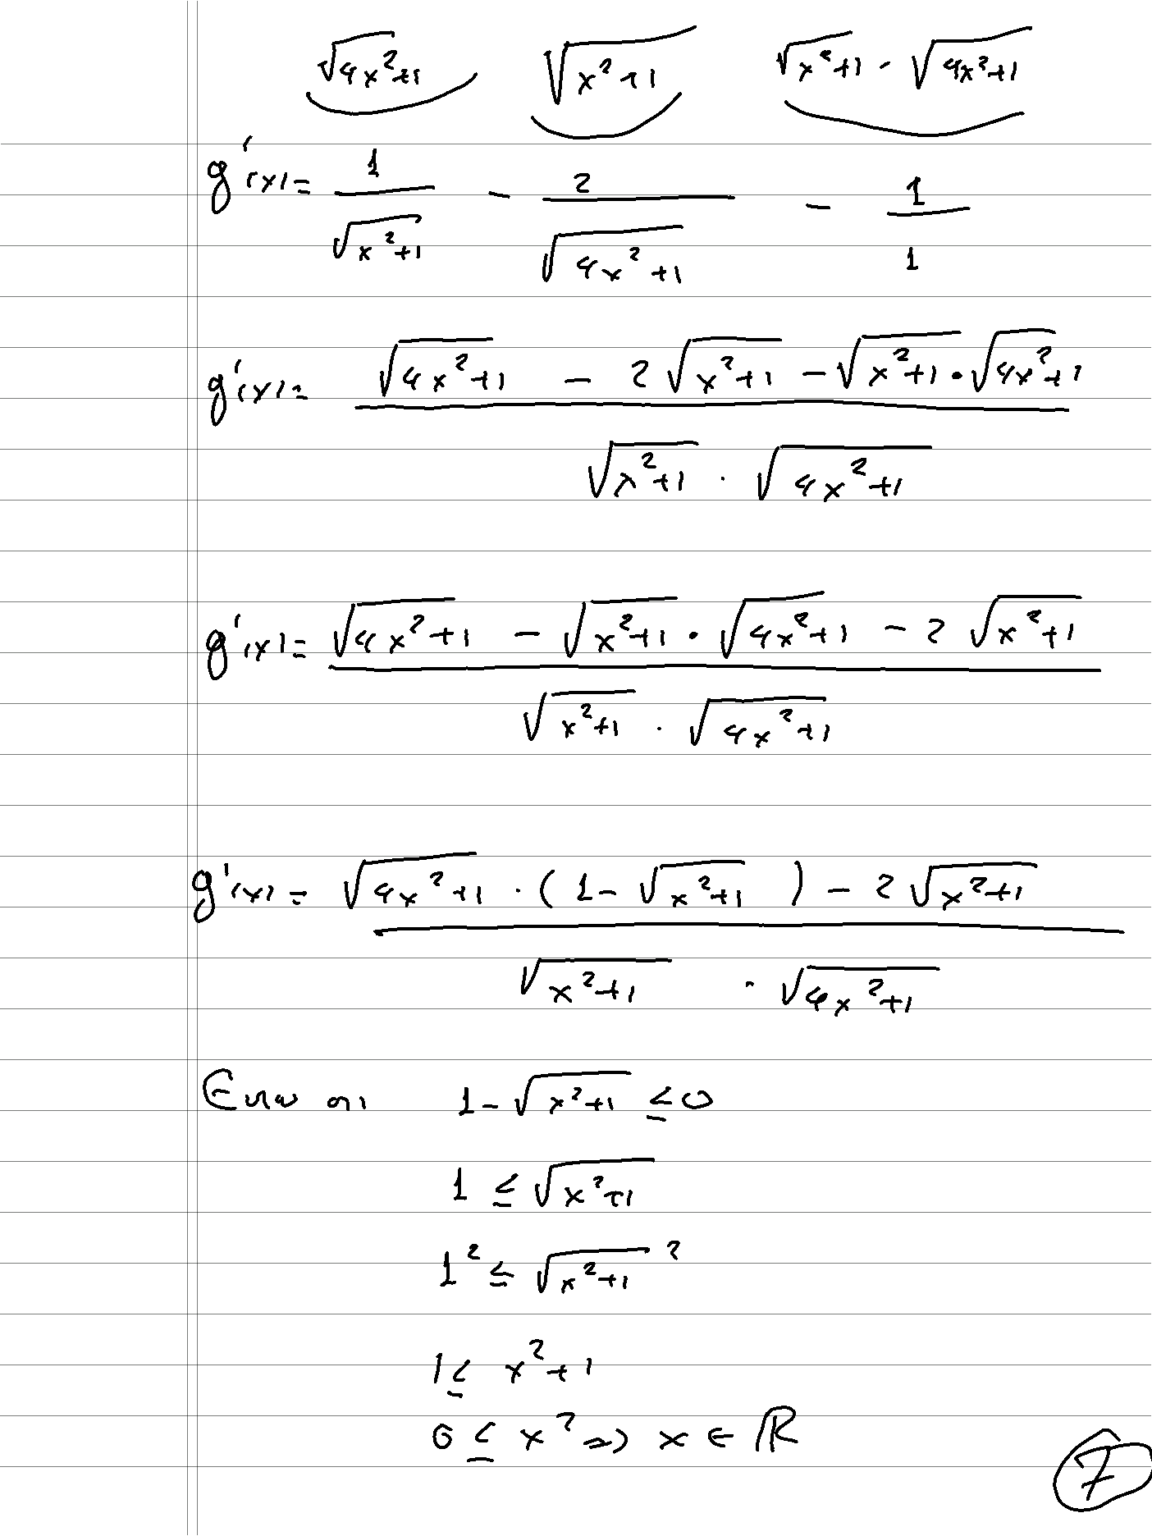 √4x²+1 √x²+1 √x²+1 · √4x²+1
g'(x)= 1/√x²+1 - 2/√4x²+1 - 1/1
g'(x)= (√4x²+1 - 2√x²+1 - √x²+1 · √4x²+1) / (√x²+1 · √4x²+1)
g'(x)= (√4x²+1 - √x²+1 · √4x²+1 - 2√x²+1) / (√x²+1 · √4x²+1)
g'(x)= (√4x²+1 · (1-√x²+1) - 2√x²+1) / (√x²+1 · √4x²+1)
Εστω οτι 1-√x²+1 ≤0
1 ≤ √x²+1
1² ≤ √x²+1²
1≤ x²+1
0 ≤ x² => x ∈ ℝ
7